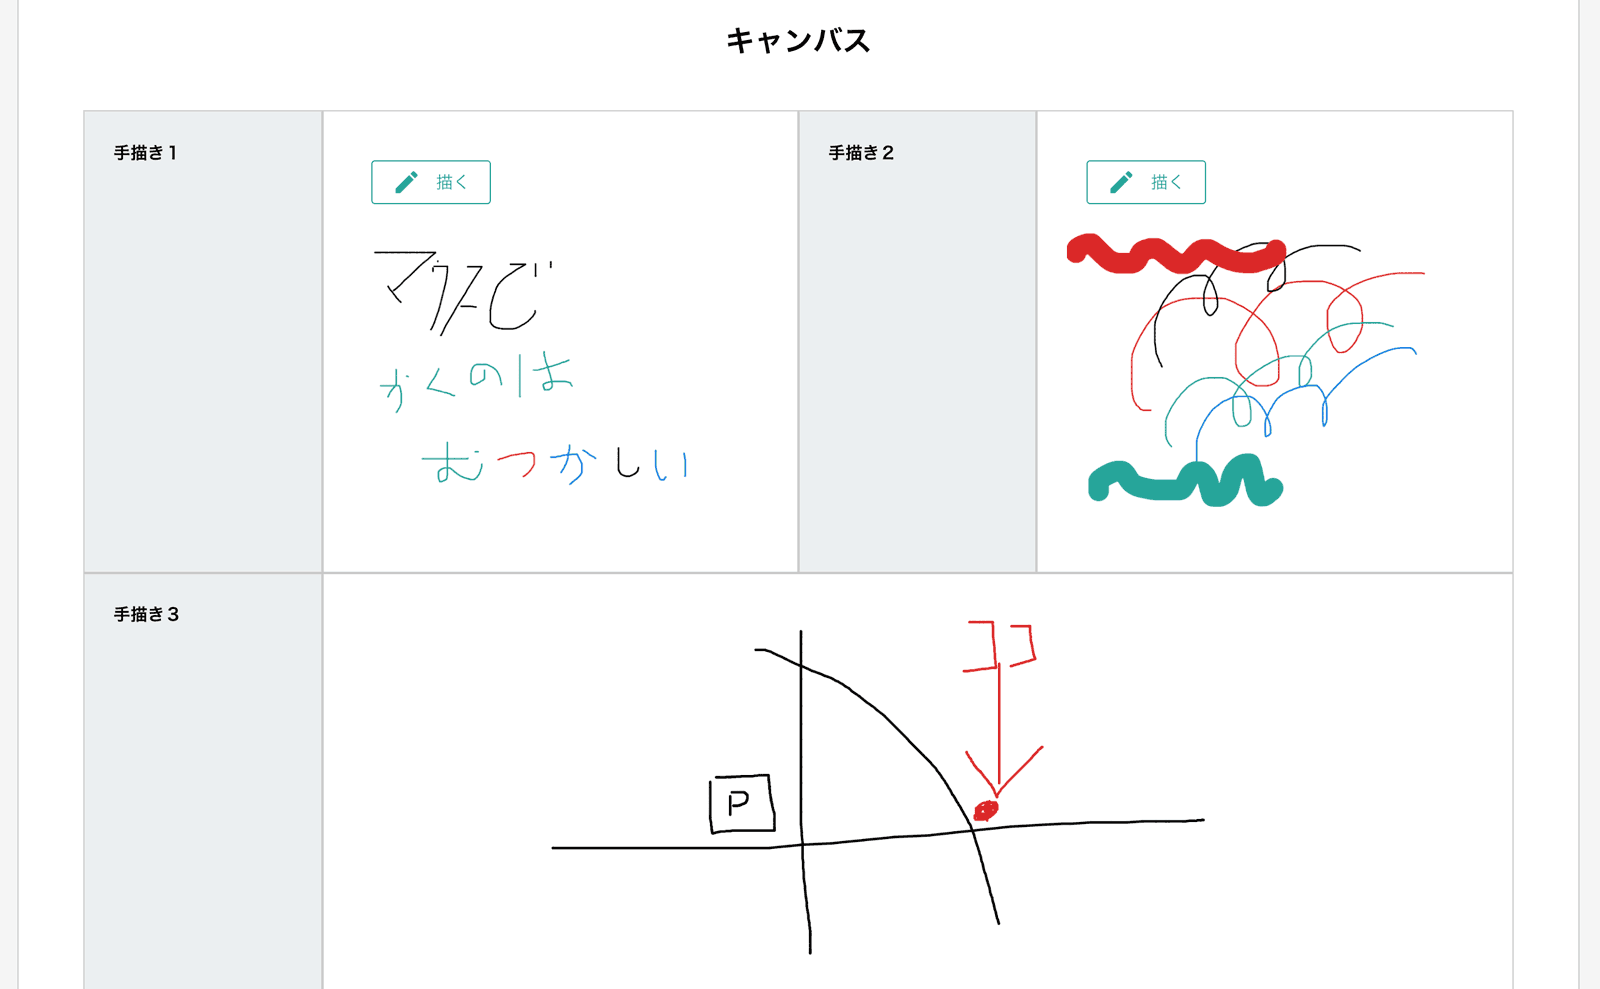 キャンバス
手描き１
描く
マウスで
かくのは
むつかしい
手描き２
描く
手描き３
ココ
P